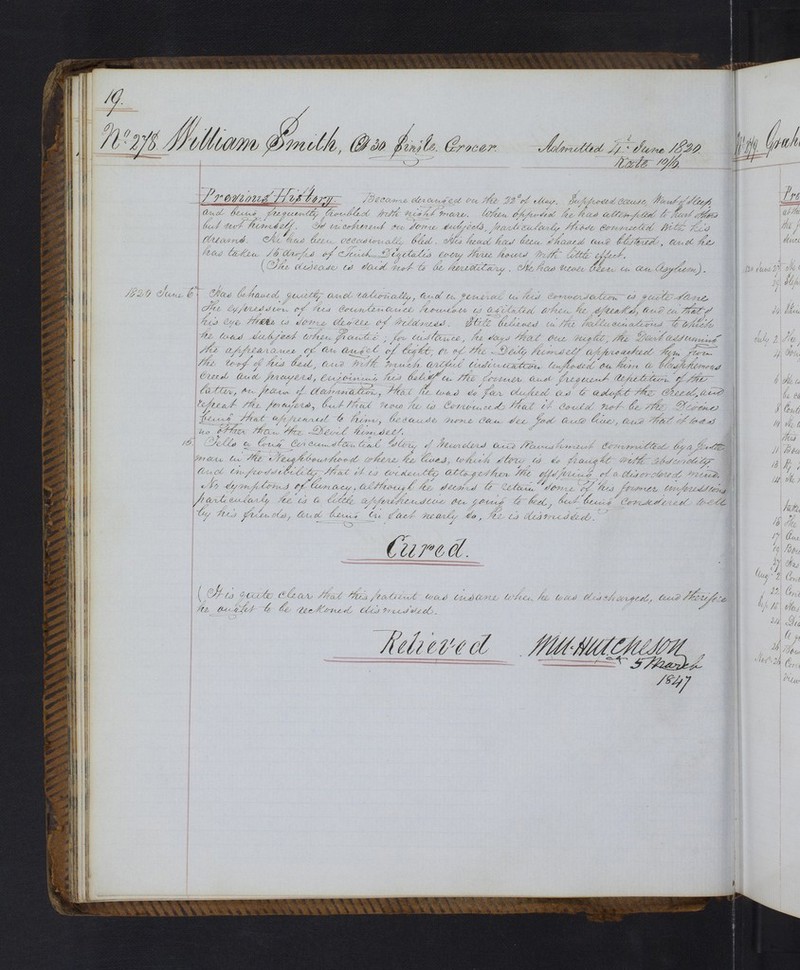 19.
No. 278 William Smith, Æ 30 Single. Grocer Admitted 4th June 1820
Rate 10/6
Previous History Became deranged on the 22d of May. Supposed cause Want of Sleep,
and being frequently troubled with night mare. When opposed he has attempted to hurt others
but not himself. Is incoherent on some subjects, particularly those connected with his
dreams. He has been occasionally bled. His head has been shaved and blistered, and he
has taken 16 drops of Tinct. Digitalis every three hours with little effect.
(The disease is said not to be hereditary. He has never been in an Asylum).
1820 June 6 Has behaved quietly and rationally, and in general in his conversation is quite sane
The expression of his countenance however is agitated when he speaks, and in that of
his eye there is some degree of wildness. Still believes in the hallucinations to which
he was subject when frantic, for instance, he says that one night, the Devil assuming
the appearance of an angel of light, or of the Deity himself approached him from
the roof of his bed, and with much artful insinuation imposed on him a blasphemous
creed and prayers, enjoining his belief in the former and frequent repetition of the
latter, on pain of damnation, that he was so far duped as to adopt the Creed, and
repeat the prayers, but that now he is convinced that it could not be the Divine
being that appeared to him, because none can see God and live, and that it was
no other than the Devil himself.
15 Tells a long circumstantial story of Murders and Punishment committed by a Gentle-
man in the Neighbourhood where he lives, which story is so fraught with absurdity
and impossibility that it is evidently altogether the offspring of a disordered mind.
No symptoms of lunacy, although he seems to retain some of his former impressions
particularly he is a little apprehensive on going to bed, but being considered well
by his friends, and being in fact nearly so, he is dismissed.
Cured.
(It is quite clear that this patient was insane when he was discharged, and therefore
he ought to be reckoned dismissed.
Relieved Wm. Hutcheson
5 March
1847